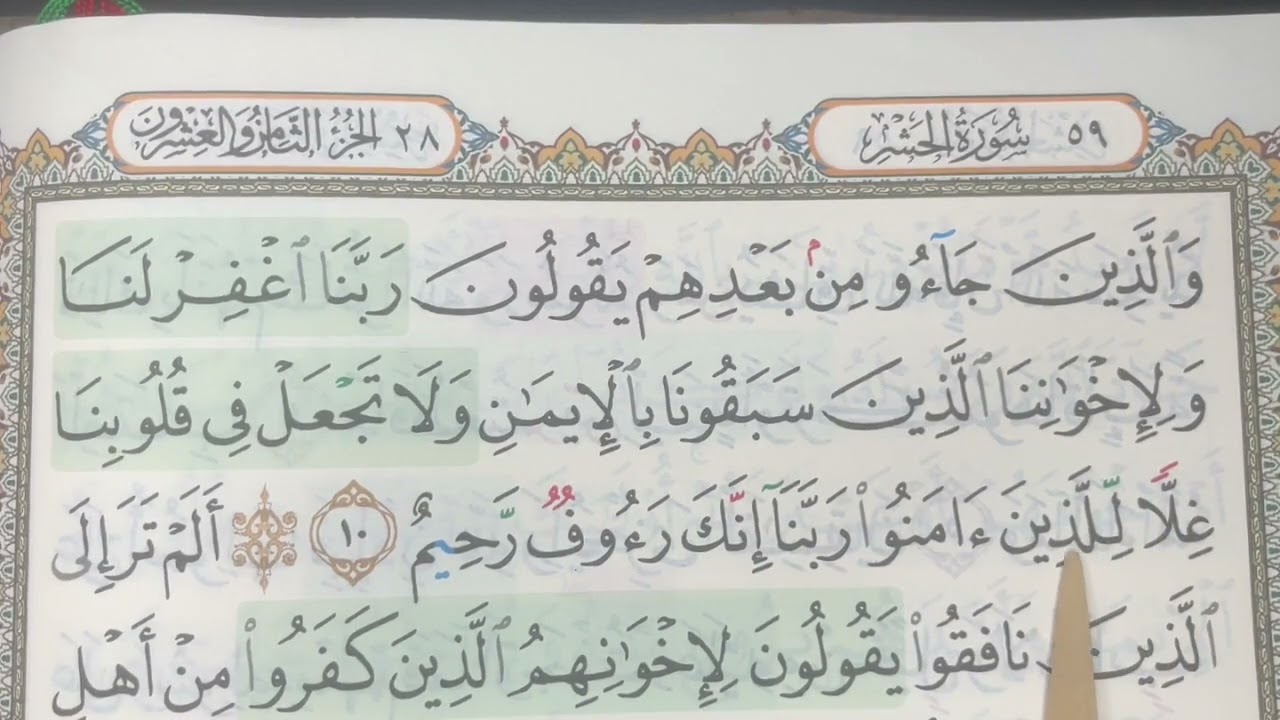 ٥٩ سُورَةُ الحَشْرِ
٢٨ الجُزْءُ الثَّامِنُ وَالعِشْرُونَ
وَالَّذِينَ جَآءُو مِنۢ بَعْدِهِمْ يَقُولُونَ رَبَّنَا ٱغْفِرْ لَنَا
وَلِإِخْوَٰنِنَا ٱلَّذِينَ سَبَقُونَا بِٱلْإِيمَٰنِ وَلَا تَجْعَلْ فِى قُلُوبِنَا
غِلًّا لِّلَّذِينَ ءَامَنُوا۟ رَبَّنَآ إِنَّكَ رَءُوفٌ رَّحِيمٌ ١٠ أَلَمْ تَرَ إِلَى
ٱلَّذِينَ نَافَقُوا۟ يَقُولُونَ لِإِخْوَٰنِهِمُ ٱلَّذِينَ كَفَرُوا۟ مِنْ أَهْلِ